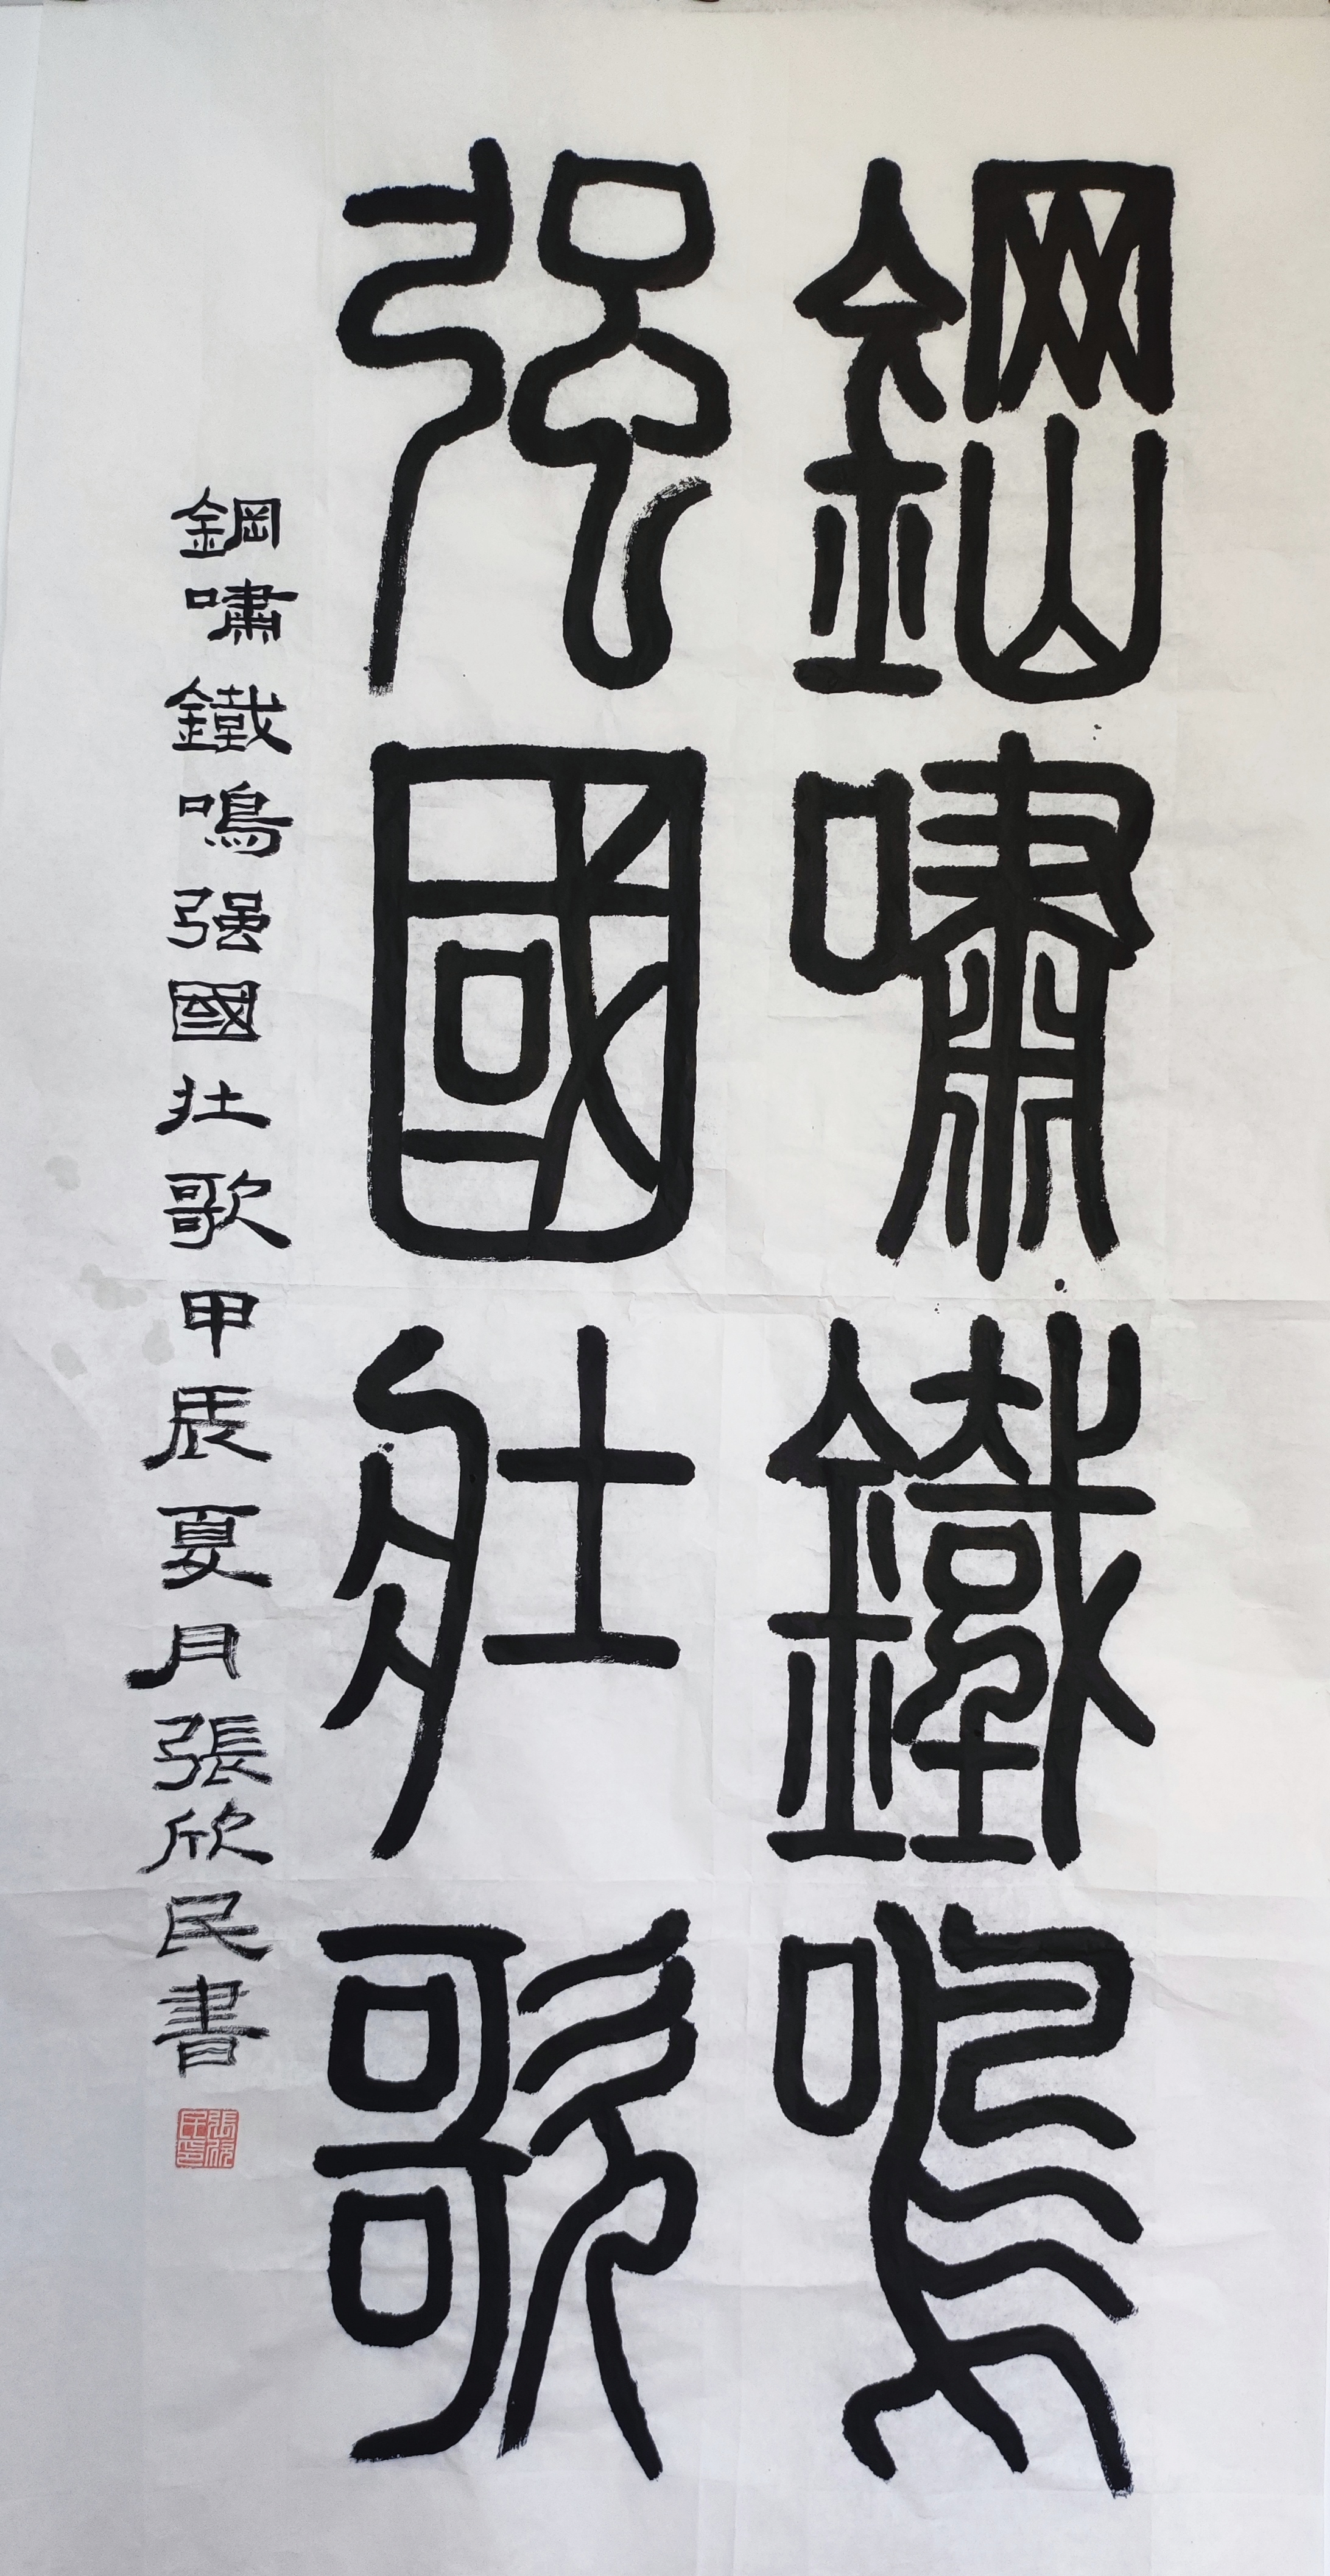 鋼嘯鐵鳴
强國壯歌
鋼嘯鐵鳴强國壯歌甲辰夏月張欣民書
張欣民印